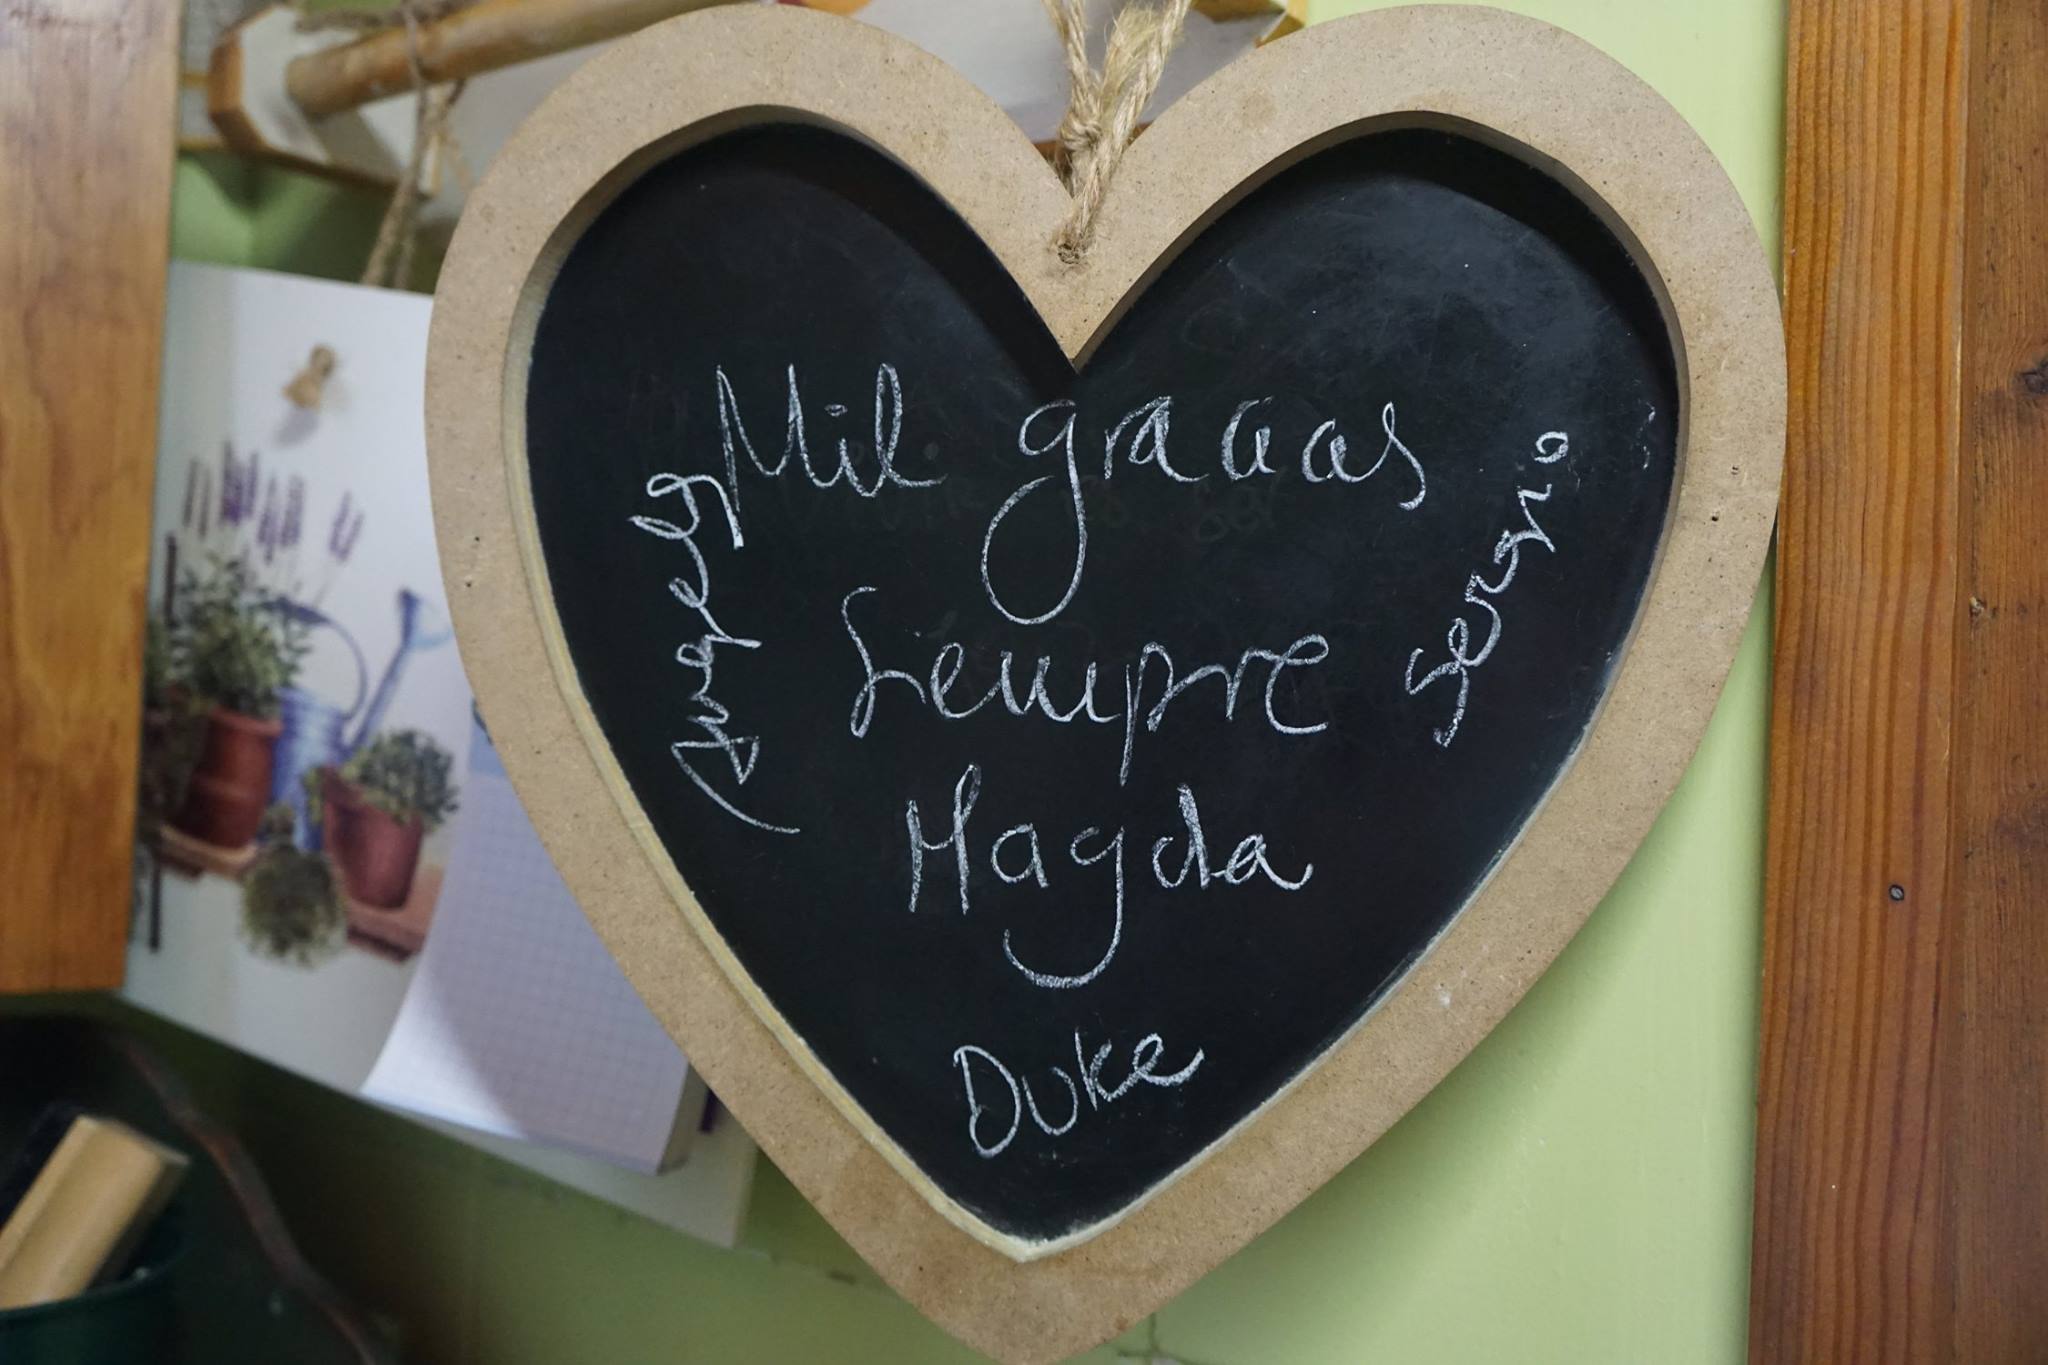 Mil gracias
Siempre
Magda
Duke
Angely
Sergio